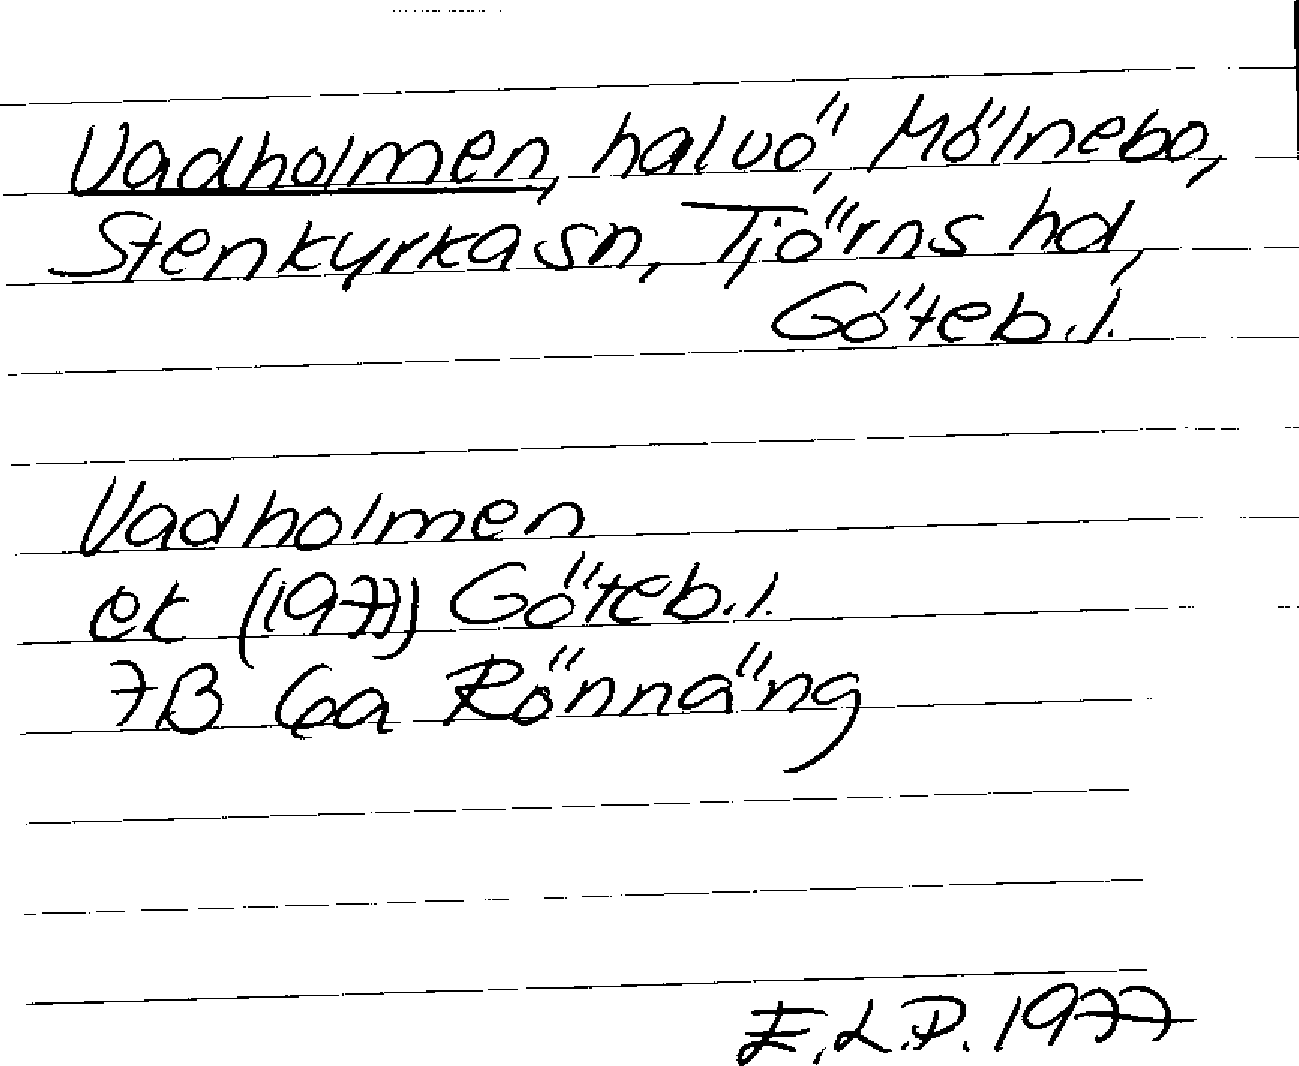 Vadholmen, halvö, Mölnebo,
Stenkyrka sn, Tjörns hd,
Göteb. l.
Vadholmen
ek (1977) Göteb. l.
7B 6a Rönnäng
E.L.P. 1977